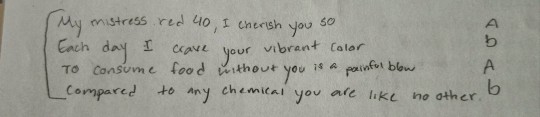 My mistress red 40, I cherish you so A
Each day I crave your vibrant color b
To consume food without you is a painful blow A
Compared to any chemical you are like no other. b